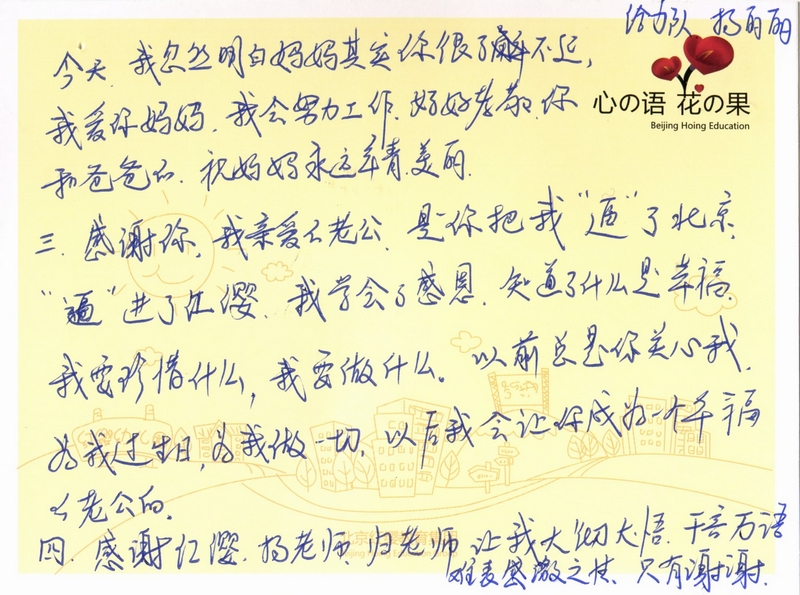 给力队 杨丽丽
心の语 花の果
Beijing Hoing Education
今天,我忽然明白妈妈其实你很了解不起,
我爱你妈妈,我会努力工作,好好孝敬你
和爸爸的.祝妈妈永远年青,美丽.
三.感谢你,我亲爱的老公,是你把我“逼”了北京,
“逼”进了红缨.我学会了感恩.知道了什么是幸福.
我要珍惜什么,我要做什么。以前总是你关心我.
为我过生日,为我做一切,以后我会让你成为一个幸福
的老公的.
四.感谢红缨.杨老师,归老师,让我大彻大悟.千言万语
难表感激之情.只有谢谢.